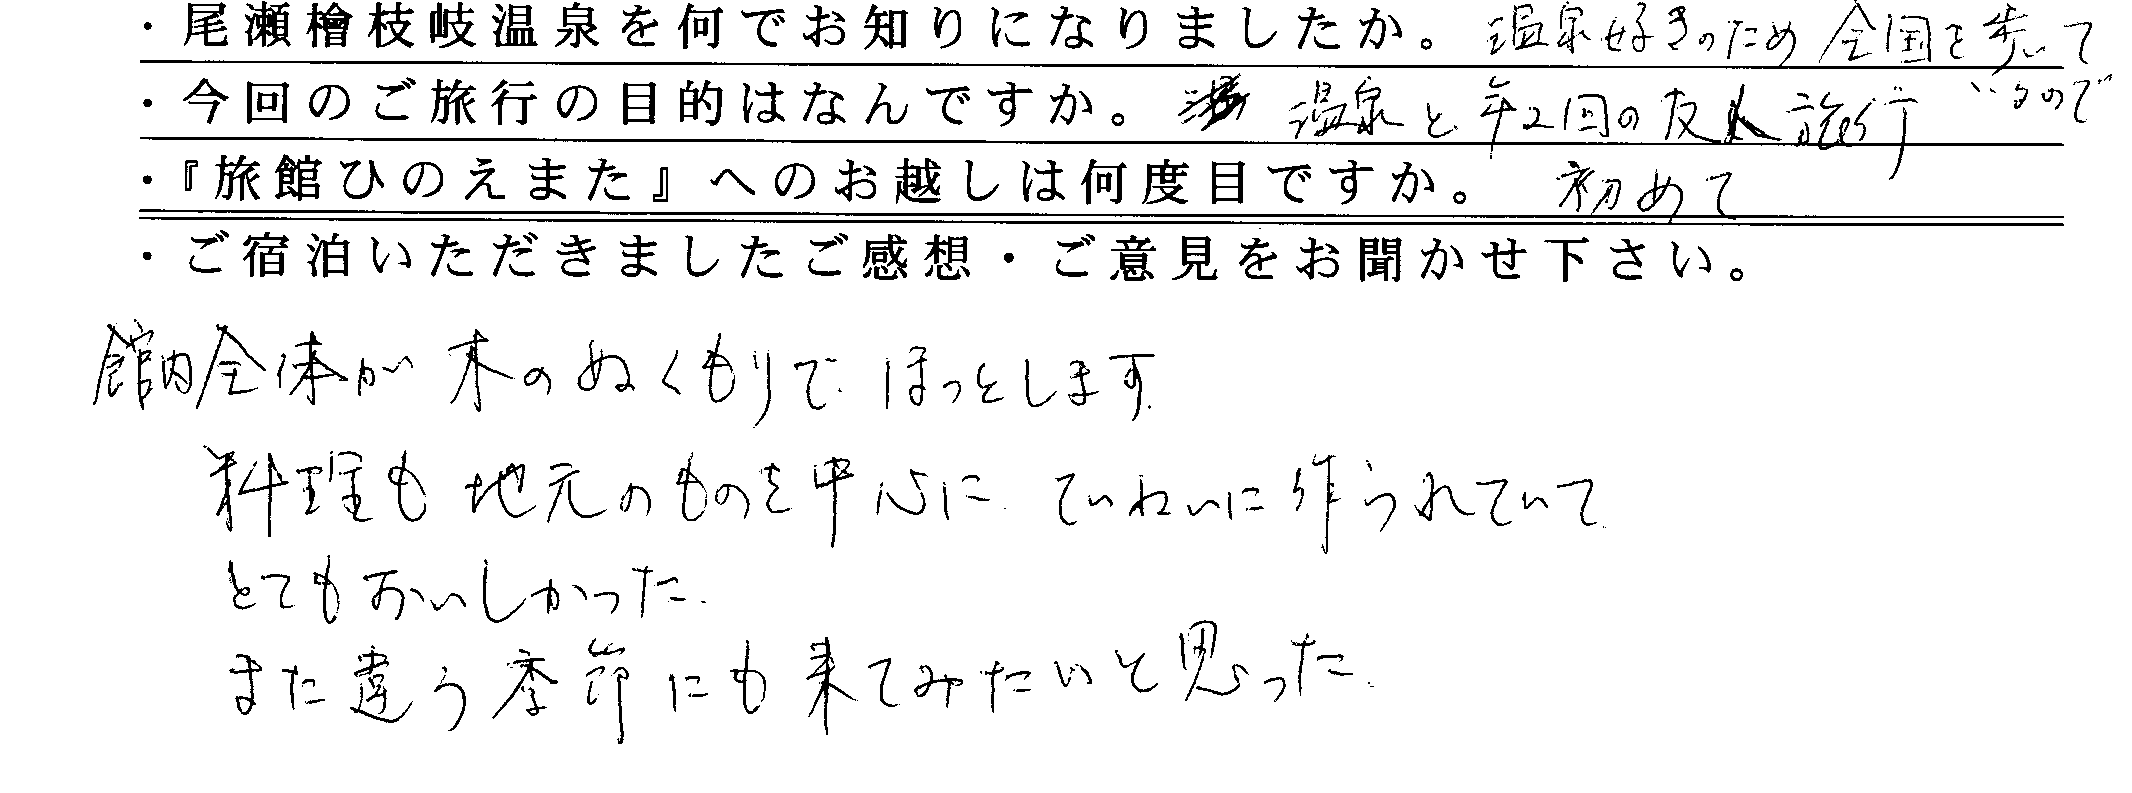 ・尾瀬檜枝岐温泉を何でお知りになりましたか。 温泉好きのため 全国を歩いて
いるので
・今回のご旅行の目的はなんですか。 温泉と年2回の友人旅行
・『旅館ひのえまた』へのお越しは何度目ですか。 初めて
・ご宿泊いただきましたご感想・ご意見をお聞かせ下さい。
館内全体が 木のぬくもりで ほっとします
料理も 地元のものを中心に ていねいに作られていて
とてもおいしかった.
また違う季節にも来てみたいと思った.